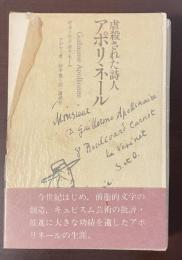 虐殺された詩人
アポリネール
Guillaume Apollinaire
Monsieur
Guillaume Apollinaire
8 Boulevard Carnot
Le Vésinet
S et O
今世紀はじめ、前衛的文学の
創造、キュビスム芸術の批評・
推進に大きな功績を遺したアポ
リネールの生涯。